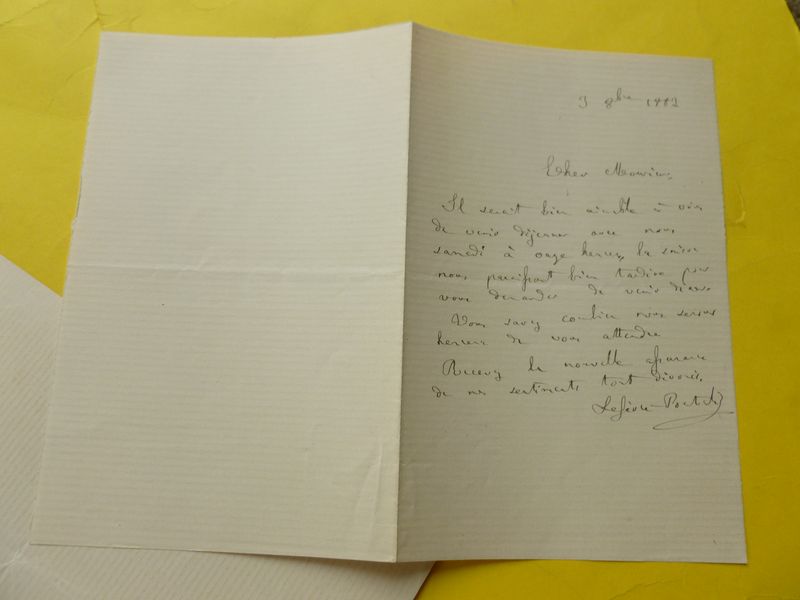 3 8bre 1882
Cher Monsieur,
Il serait bien aimable à vous
de venir déjeuner avec nous
samedi à onze heures, la saison
nous paraissant bien tardive pour
vous demander de venir
Vous savez combien nous serons
heureux de vous attendre
Recevez la nouvelle assurance
de nos sentiments tout dévoués.
Lefèvre-Pontalis